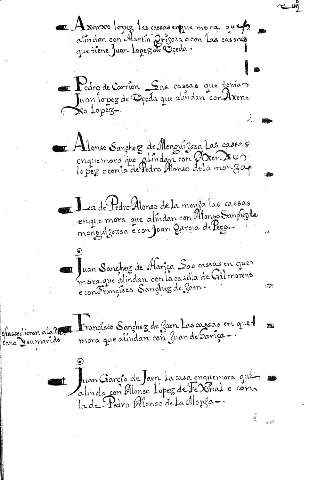 Axenxo lopez las cassas en que mora que
alindan con Martin Grisozo e con las cassas
que tiene Juan Lopez de Vbeda
Pedro de Carrion Las cassas que tenia
Juan Lopez de Vbeda que alindan con Axen
xo Lopez
Alonso Sanchez de Menguizosa las cassas
en que mora que alindan con Axenxo
lopez e con la de Pedro Alonso de la monxa
La de Pedro Alonso de la monxa las cassas
en que mora que alindan con Alonso Sanchez de
menguizossa e con Juan Garcia de
Juan Sanchez de Hariza Las cassas en que
mora que alindan con la casilla de Gil moreno
e con Francisco Sanchez de Jaen
Francisco Sanchez de Jaen Las cassas en que
mora que alindan con Juan de hariza
Juan Garcia de Jaen la casa en que mora que
alinda con Alonso Lopez de e con
la de Pedro Alonso de La Monxa